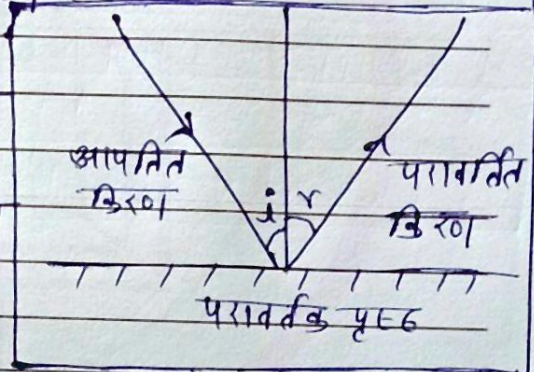 आपतित
किरण
i r
परावर्तित
किरण
परावर्तक पृष्ठ